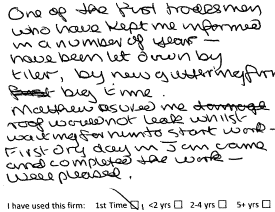 One of the first tradesmen
who have kept me informed
in a number of years -
have been let down by
tiler, by new guttering firm
big time.
Matthew assured me damage
roof would not leak whilst
waiting for him to start work -
First dry day in Jan came
and completed the work -
well pleased.
I have used this firm: 1st Time ☑, <2 yrs ☐ 2-4 yrs ☐ 5+ yrs ☐